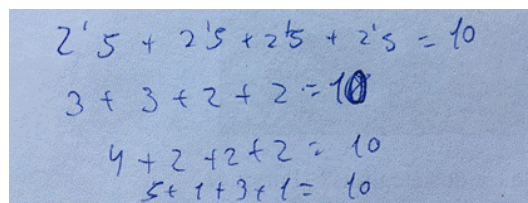 2'5 + 2'5 + 2'5 + 2'5 = 10
3 + 3 + 2 + 2 = 10
4 + 2 + 2 + 2 = 10
5 + 1 + 3 + 1 = 10